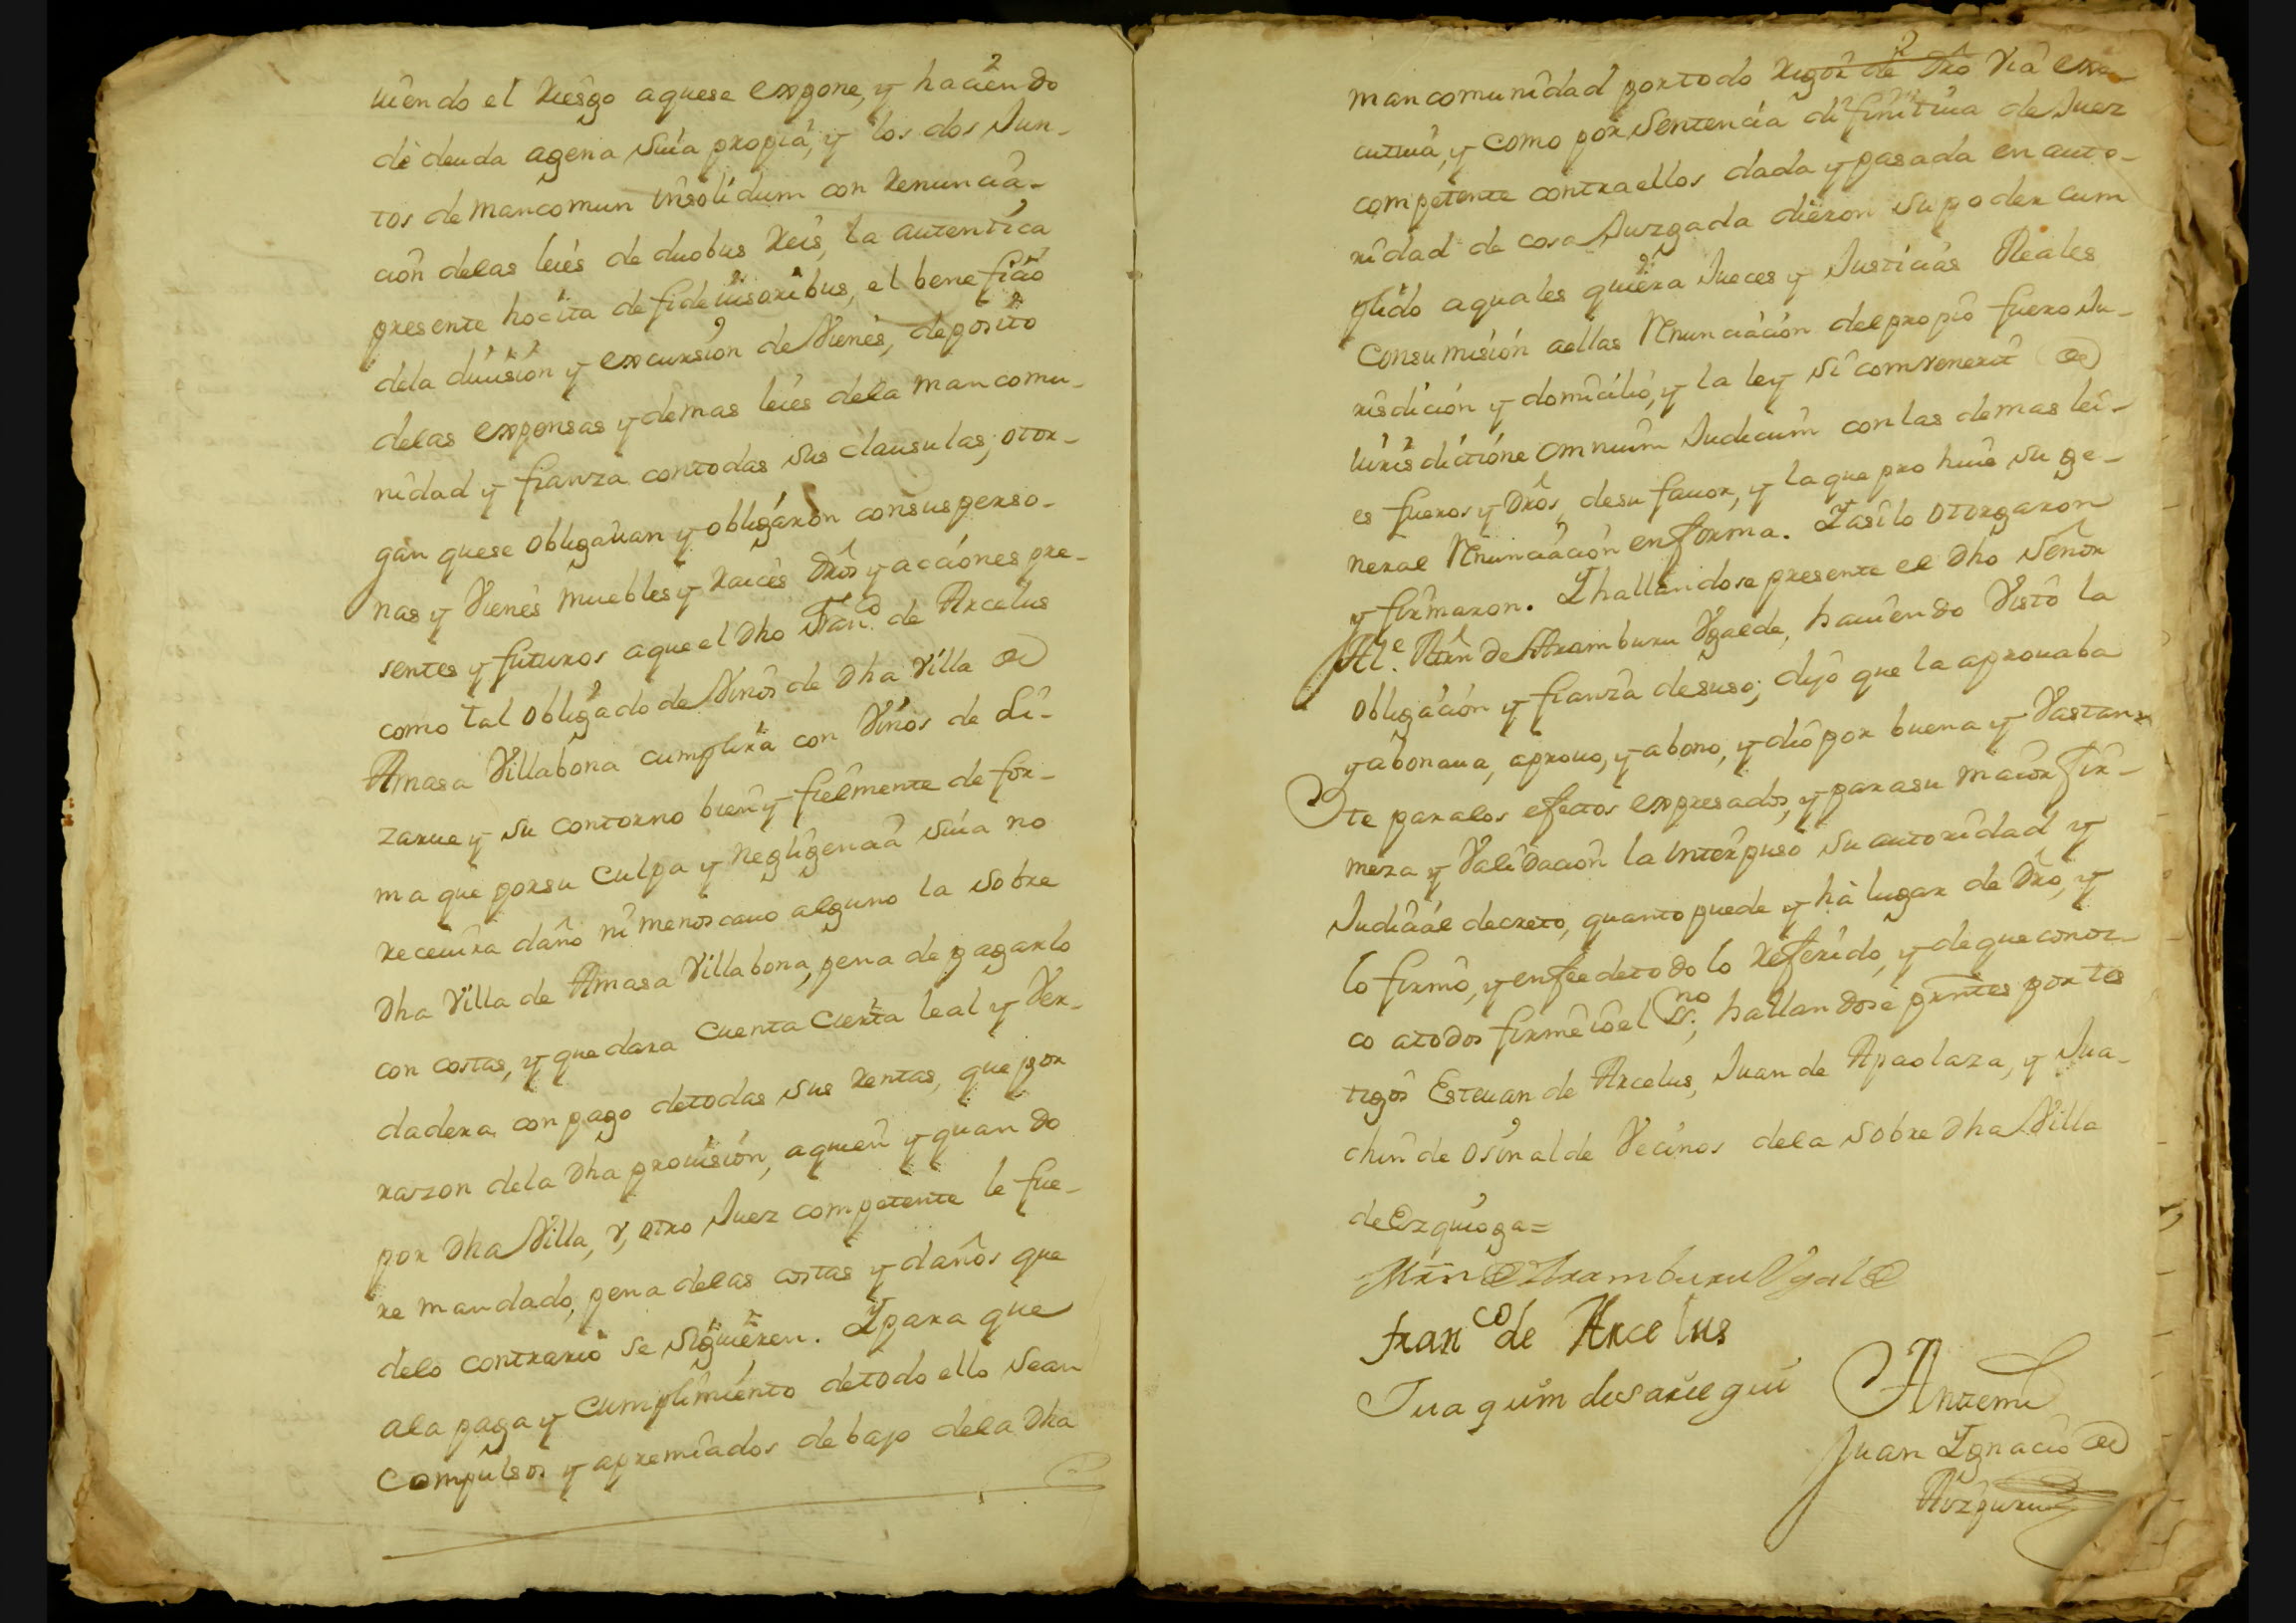 uiendo el riesgo aquese expone, y haciendo
de deuda agena suia propia, y los dos Jun-
tos de mancomun insolidum con renuncia-
cion delas leies de duobus reis, la autentica
presente hocita de fideiusoribus, el beneficio
dela diuision y excursion de Vienes, deposito
delas expensas y demas leies dela mancomu-
nidad y fianza contodas sus clausulas, otor-
gan quese obligauan y obligaron consus perso-
nas y Vienes muebles y raices Dros y acciones pre-
sentes y futuros aque el Dho Franco de Arcelus
como tal obligado de Vinos de Dha Villa de
Amasa Villabona cumplira con Vinos de Li-
zarue y su contorno bien y fielmente de for-
ma que por su culpa y negligencia suia no
receuira daño ni menoscauo alguno la sobre
Dha Villa de Amasa Villabona, pena de pagarlo
con costas, y que dara cuenta cierta leal y Ver-
dadera con pago detodas sus rentas, que por
razon dela Dha prouision, aquien y quando
por Dha Villa, v, otro Juez competente le fue-
re mandado, pena delas costas y daños que
delo contrario se siguieren. Ypara que
ala paga y cumplimiento detodo ello sean
compulsos y apremiados debajo dela Dha
mancomunidad por todo rigor de Dro Via exe-
cutiua, y como por sentencia difinitiua de Juez
competente contra ellos dada y pasada en auto-
ridad de cosa Juzgada dieron su poder cum
plido aquales quiera Jueces y Justicias Reales
Consumision aellas Renunciacion del propio fuero Ju-
risdicion y domicilio, y la ley si convenerit de
iurisdictione omnium Judicum con las demas lei-
es fueros y Dros, desu fauor, y la que prohiue su ge-
neral Renunciacion enforma. Yasilo otorgaron
y firmaron. Yhallandose presente el Dho Señor
Ale. Mrn de Aramburu Vgalde, hauiendo Visto la
obligacion y fianza desuso; dijo que la aprouaba
y abonaua, aprouo, y abono, y dio por buena y Vastan-
te paralos efectos expresados, y parasu maior fir-
meza y Validacion la interpuso su autoridad y
Judicial decreto, quanto puede y ha lugar de Dro, y
lo firmo, y enfee detodo lo referido, y de que conoz-
co atodos firme io el sno, hallandose prntes por tes
tigos Esteuan de Arcelus, Juan de Apaolaza, y Jua-
chin de Osinalde Vecinos dela sobre Dha Villa
de Ezquioga=
Mrn de Aramburu Vgalde
franco de Arcelus
Juaquin desariegui
Antemi
Juan Ygnacio de
Aizpuru